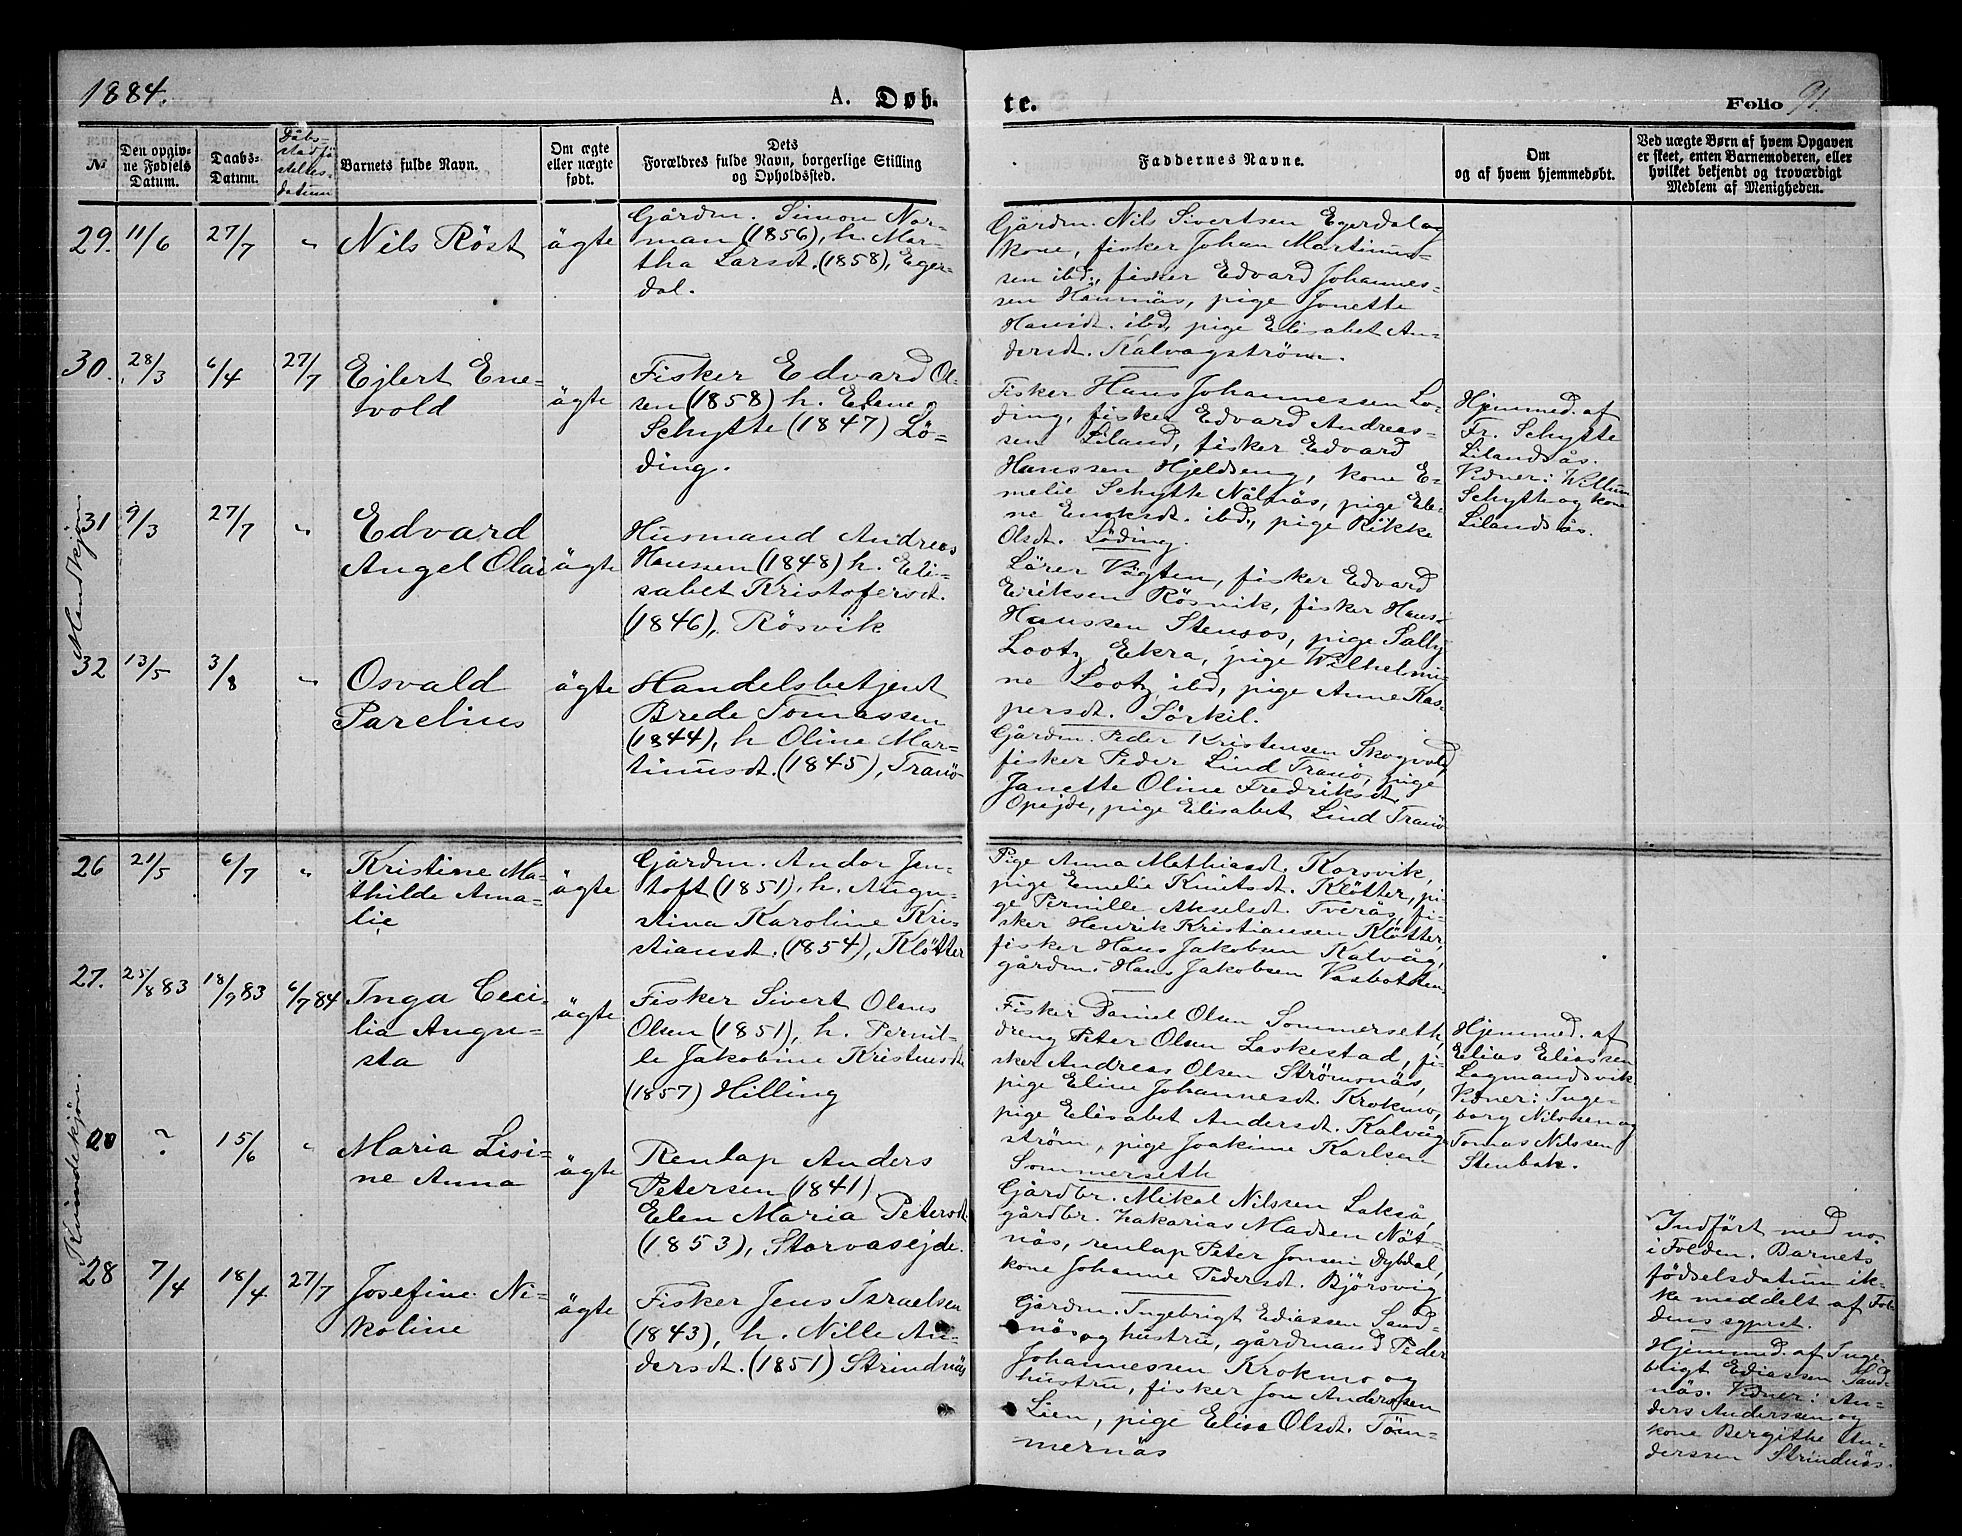 1884.
A. Døb-
te.
Folio 91.
№
Den opgiv-
ne Fødsels
Datum.
Daabs-
Datum.
Dåbs-
stadfä
stelses-
datum
Barnets fulde Navn.
Om ægte
eller uægte
født.
Dets
Forældres fulde Navn, borgerlige Stilling
og Opholdssted.
Faddernes Navne.
Om
og af hvem hjemmedøbt.
Ved uægte Børn af hvem Opgaven
er skeet, enten Barnemoderen, eller
hvilket bekjendt og troværdigt
Medlem af Menigheden.
Mandkjøn
29. 11/6 27/7 " Nils Röst ägte
Gårdm. Simon Nor-
man (1856), h. Mar-
tha Larsdt. (1858), Eger-
dal.
Gårdm. Nils Sivertsen Egerdal og
kone, fisker Johan Martinus-
sen ibd., fisker Edvard Johannes-
sen Haunäs, pige Jonette
Hansdt. ibd, pige Elisabet An-
dersdt. Kalvagström.
30. 28/3 6/4 27/7 Ejlert Ene-
vold
ägte
Fisker Edvard Ol-
sen (1858) h. Elene
Schytte (1847) Lö-
ding.
Fisker Hans Johannessen Lö-
ding, fisker Edvard Andreas-
sen Liland, fisker Edvard
Hanssen Hjeldseng, kone E-
melie Schytte Nålnäs, pige Ele-
ne Enoksdt. ibd., pige Rikke
Olsdt. Löding.
Hjemmed. af
Fr. Schytte
Lilandsås.
Vidner: Willum
Schytte og kone
Lilandsås.
31 9/3 27/7 " Edvard
Angel Olai ägte
Husmand Andreas
Hanssen (1848) h. Eli-
sabet Kristofersdt.
(1846), Rösvik
Lärer Vigten, fisker Edvard
Eriksen Rösvik, fisker Hans
Hanssen Stensos, pige Sally
Lootz, Ekra, pige Wilhelmi-
ne Lootz ibd, pige Anne Kas-
persdt. Sörkil.
32 13/5 3/8 " Osvald
Parelius
ägte
Handelsbetjent
Brede Tomassen
(1844), h Oline Mar-
tinusdt. (1845), Tranö
Gårdm. Peder Kristensen Skogvold,
fisker Peder Lind Tranö, pige
Janette Oline Fredriksdt.
Opejde, pige Elisabet Lind Tranö
Kvindekjön.
26 21/5 6/7 " Kristine Ma-
thilde Ama-
lie
ägte
Gårdm. Andor Jen-
toft (1851), h. Augu-
stina Karoline Kris-
tiansdt. (1854), Klötter
Pige Anna Mathiasdt. Korsvik,
pige Emelie Knutsdt. Klötter, pi-
ge Pernille Akselsdt. Tverås, fi-
sker Henrik Kristiansen Klötter,
fisker Hans Jakobsen Kalvåg,
gårdm. Hans Jakobsen Vasbotten
27. 25/8 83 18/9 83 6/7 84 Inga Ceci-
lia Augu-
sta
ägte
Fisker Sivert Olaus
Olsen (1851), h. Pernil-
le Jakobine Kristensdt
(1857) Hilling
Fisker Daniel Olsen Sommerseth,
dreng Peter Olsen Laskestad, fi-
sker Andreas Olsen Strömsnäs,
pige Eline Johannesdt. Krokmo,
pige Elisabet Andersdt. Kalvåg-
ström, pige Joakime Karlsen
Sommerseth
Hjemmed. af
Elias Eliassen
Lagmandsvik.
Vidner: Inge-
borg Nilssen og
Tomas Nilssen
Stenbak.
? 15/6 " Maria Lisi-
ne Anna
ägte
Renlap Anders
Petersen (1841)
Elen Maria Petersdt.
(1853), Storvasejde.
Gårdbr. Mikal Nilssen Lakså,
gårdbr. Zakarias Madsen Nöt-
näs, renlap Peter Jonsen Dybdal,
kone Johanne Pedersdt. Björsvig
Indfört med no.
i Folden. Barnets
födselsdatum ik-
ke meddelt af Fol-
dens sgprst.
28 7/4 18/4 27/7 Josefine Ni-
koline
ägte
Fisker Jens Israelsen
(1843), h. Nille An-
dersdt. (1851) Strindnäs
Gårdm. Ingebrigt Ediassen Sand-
näs og hustru, gårdmand Peder
Johannessen Krokmo og
hustru, fisker Jon Anderssen
Lien, pige Elise Olsdt. Töm-
mernäs
Hjemmd. af Inge-
brigt Ediassen Sand-
näs. Vidner: An-
ders Anderssen og
kone Bergithe An-
derssen Strindnäs.